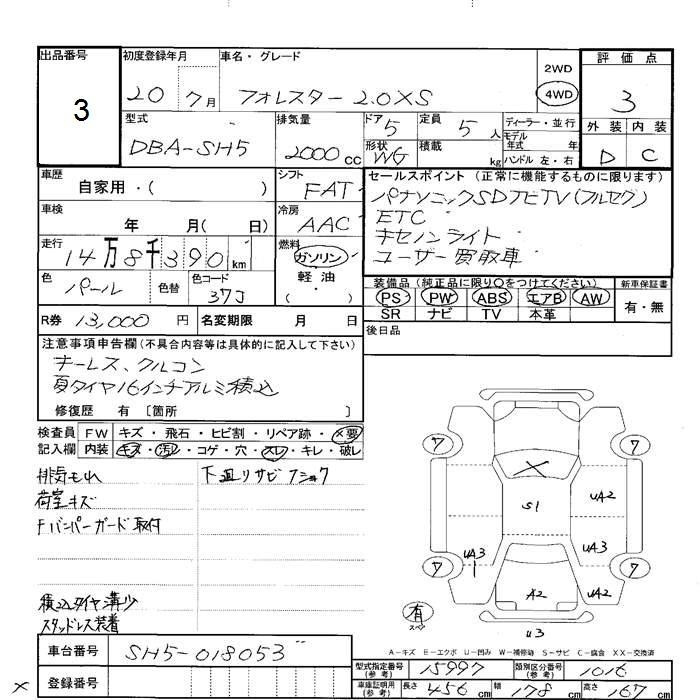 出品番号 初度登録年月 車名・グレード 2WD 評価点
3 20 7月 フォレスター 2.0XS 4WD 3
型式 排気量 ドア 定員 ディーラー・並行 外装 内装
DBA-SH5 2000cc 5 5人 モデル年式 年 D C
形状 WG 積載 kg ハンドル 左・右
車歴 シフト セールスポイント(正常に機能するものに限ります)
自家用・( ) FAT パナソニックSDナビTV(フルセグ)
車検 冷房 ETC
年 月( 日) AAC キセノンライト
走行 燃料 ユーザー買取車
14万8千390km ガソリン
軽・油
( )
色 色替 色コード 装備品(純正品に限り○をつけてください) 新車保証書
パール 37J PS PW ABS エアB AW 有・無
SR ナビ TV 本革
R券 13,000円 名変期限 月 日 後日品
注意事項申告欄(不具合内容等は具体的に記入して下さい)
キーレス、クルコン
夏タイヤ16インチアルミ積込
修復歴 有 〔箇所 〕
検査員 FW キズ・飛石・ヒビ割・リペア跡・×要
記入欄 内装 キズ・汚レ・コゲ・穴・スレ・キレ・破レ
排気モれ 下廻リサビ
荷室キズ
Fバンパーガード取付
積込タイヤ溝少
スタッドレス装着
7 7
S1 UA2
UA3 UA3
7 7
A2 UA2
有
スペ U3
A-キズ E-エクボ U-凹み W-補修跡 S-サビ C-腐食 XX-交換済
車台番号 SH5-018053
型式指定番号(参考) 15997 類別区分番号(参考) 1016
登録番号
車庫証明用(参考) 長さ 456cm 幅 178cm 高さ 167cm